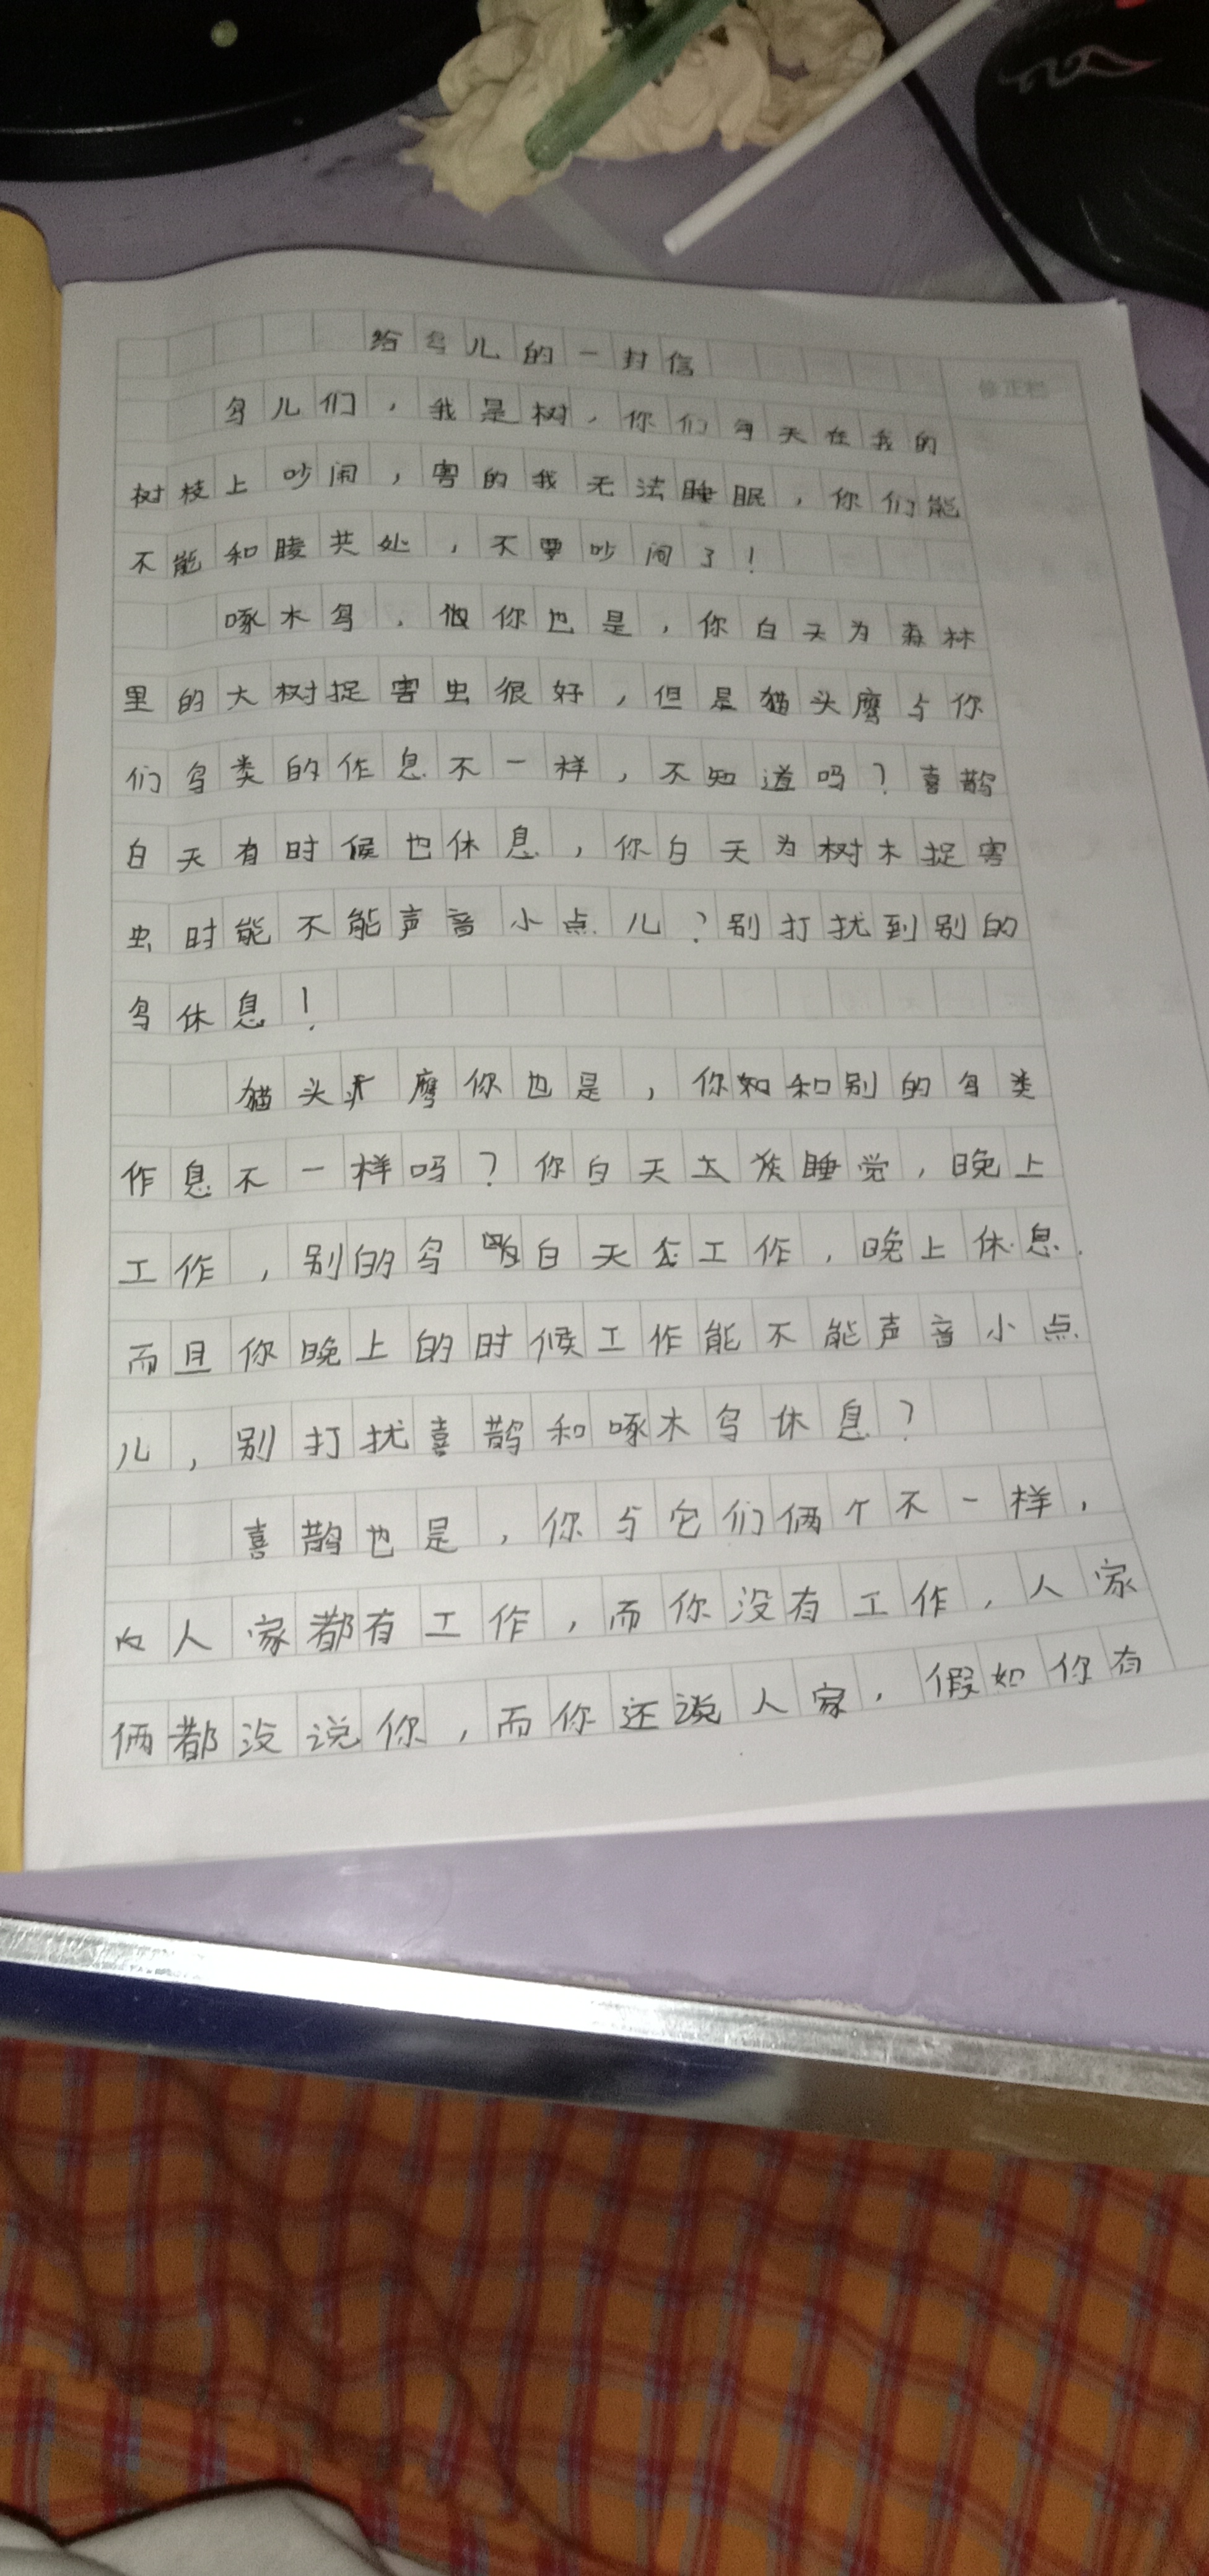 给鸟儿的一封信
修正栏
鸟儿们，我是树，你们每天在我的
树枝上吵闹，害的我无法睡眠，你们能
不能和睦共处，不要吵闹了！
啄木鸟，你也是，你白天为森林
里的大树捉害虫很好，但是猫头鹰与你
们鸟类的作息不一样，不知道吗？喜鹊
白天有时候也休息，你白天为树木捉害
虫时能不能声音小点儿？别打扰到别的
鸟休息！
猫头鹰你也是，你知和别的鸟类
作息不一样吗？你白天睡觉，晚上
工作，别的鸟白天工作，晚上休息.
而且你晚上的时候工作能不能声音小点
儿，别打扰喜鹊和啄木鸟休息？
喜鹊也是，你与它们俩个不一样，
人家都有工作，而你没有工作，人家
俩都没说你，而你还说人家，假如你有